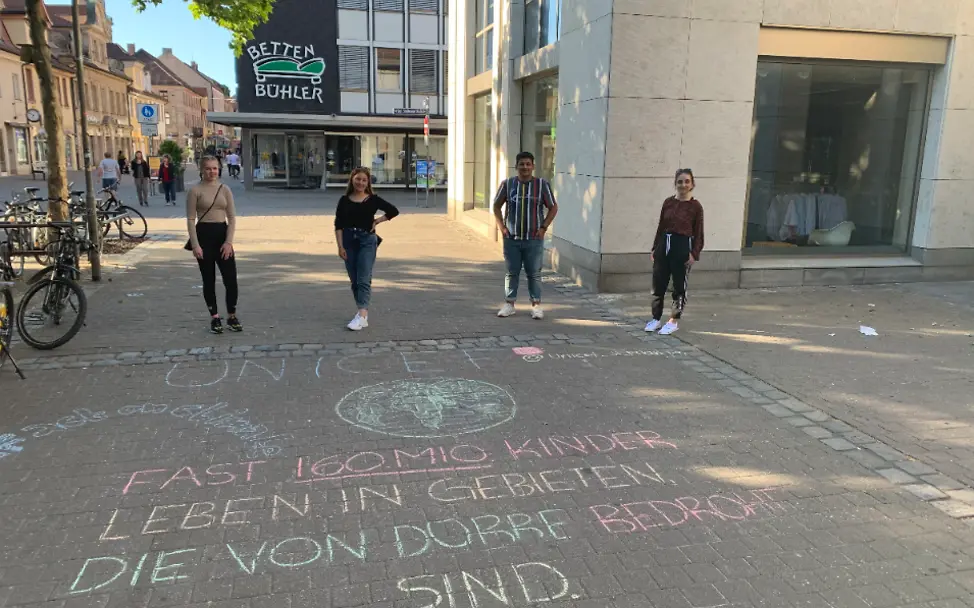 BETTEN
BÜHLER
UNICEF
FAST 160 MIO KINDER
LEBEN IN GEBIETEN.
DIE VON DÜRRE BEDROHT
SIND.